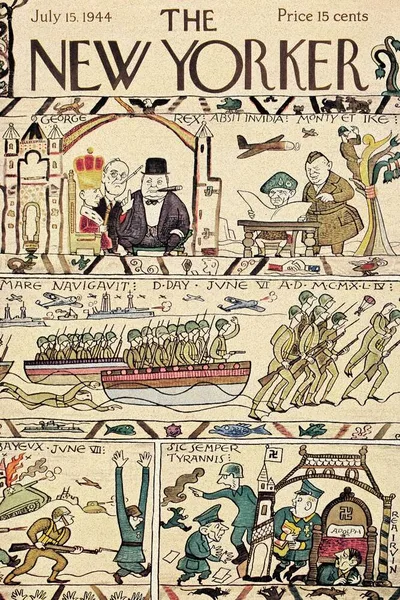 July 15, 1944
THE
Price 15 cents
NEW YORKER
GEORGE REX: ABSIT INVIDIA! MONTY ET IKE:
MARE NAVIGAVIT: D-DAY · JUNE VI A.D. MCMXLIV:
BAYEUX · JUNE VII:
SIC SEMPER
TYRANNIS:
ADOLPH